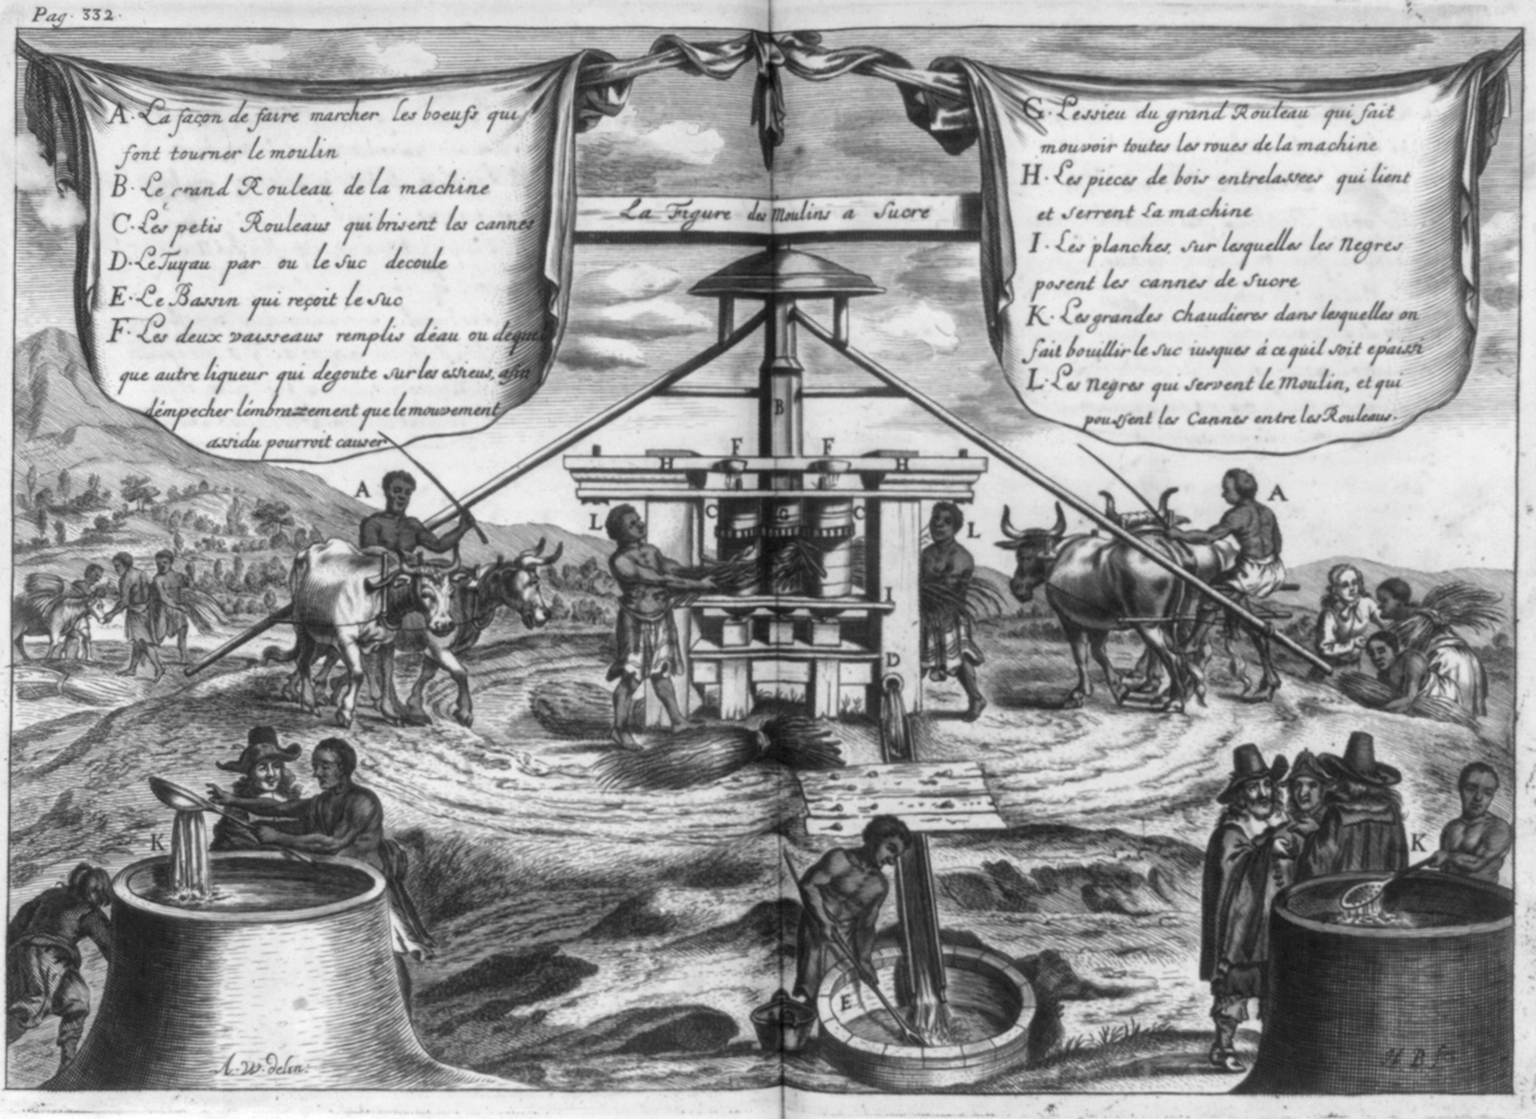 Pag. 332.
A. La façon de faire marcher les boeufs qui
font tourner le moulin
B. Le grand Rouleau de la machine
C. Les petis Rouleaus qui brisent les cannes
D. Le Tuyau par ou le suc decoule
E. Le Bassin qui reçoit le suc
F. Les deux vaisseaus remplis déau ou dequel
que autre liqueur qui degoute sur les essieus, afin
démpecher lémbrazement que le mouvement
assidu pourroit causer
La Figure des Moulins a Sucre
G. Lessieu du grand Rouleau qui fait
mouvoir toutes les roues de la machine
H. Les pieces de bois entrelassees qui lient
et serrent La machine
I. Les planches, sur lesquelles les Negres
posent les cannes de Sucre
K. Les grandes Chaudieres dans lesquelles on
fait bouillir le suc iusques á ce quil soit epaissi
L. Les Negres qui servent le Moulin, et qui
poussent les Cannes entre les Rouleaus.
B
F F
H H
A A
L C G C L
I
D
K K
E
A. W. delin: